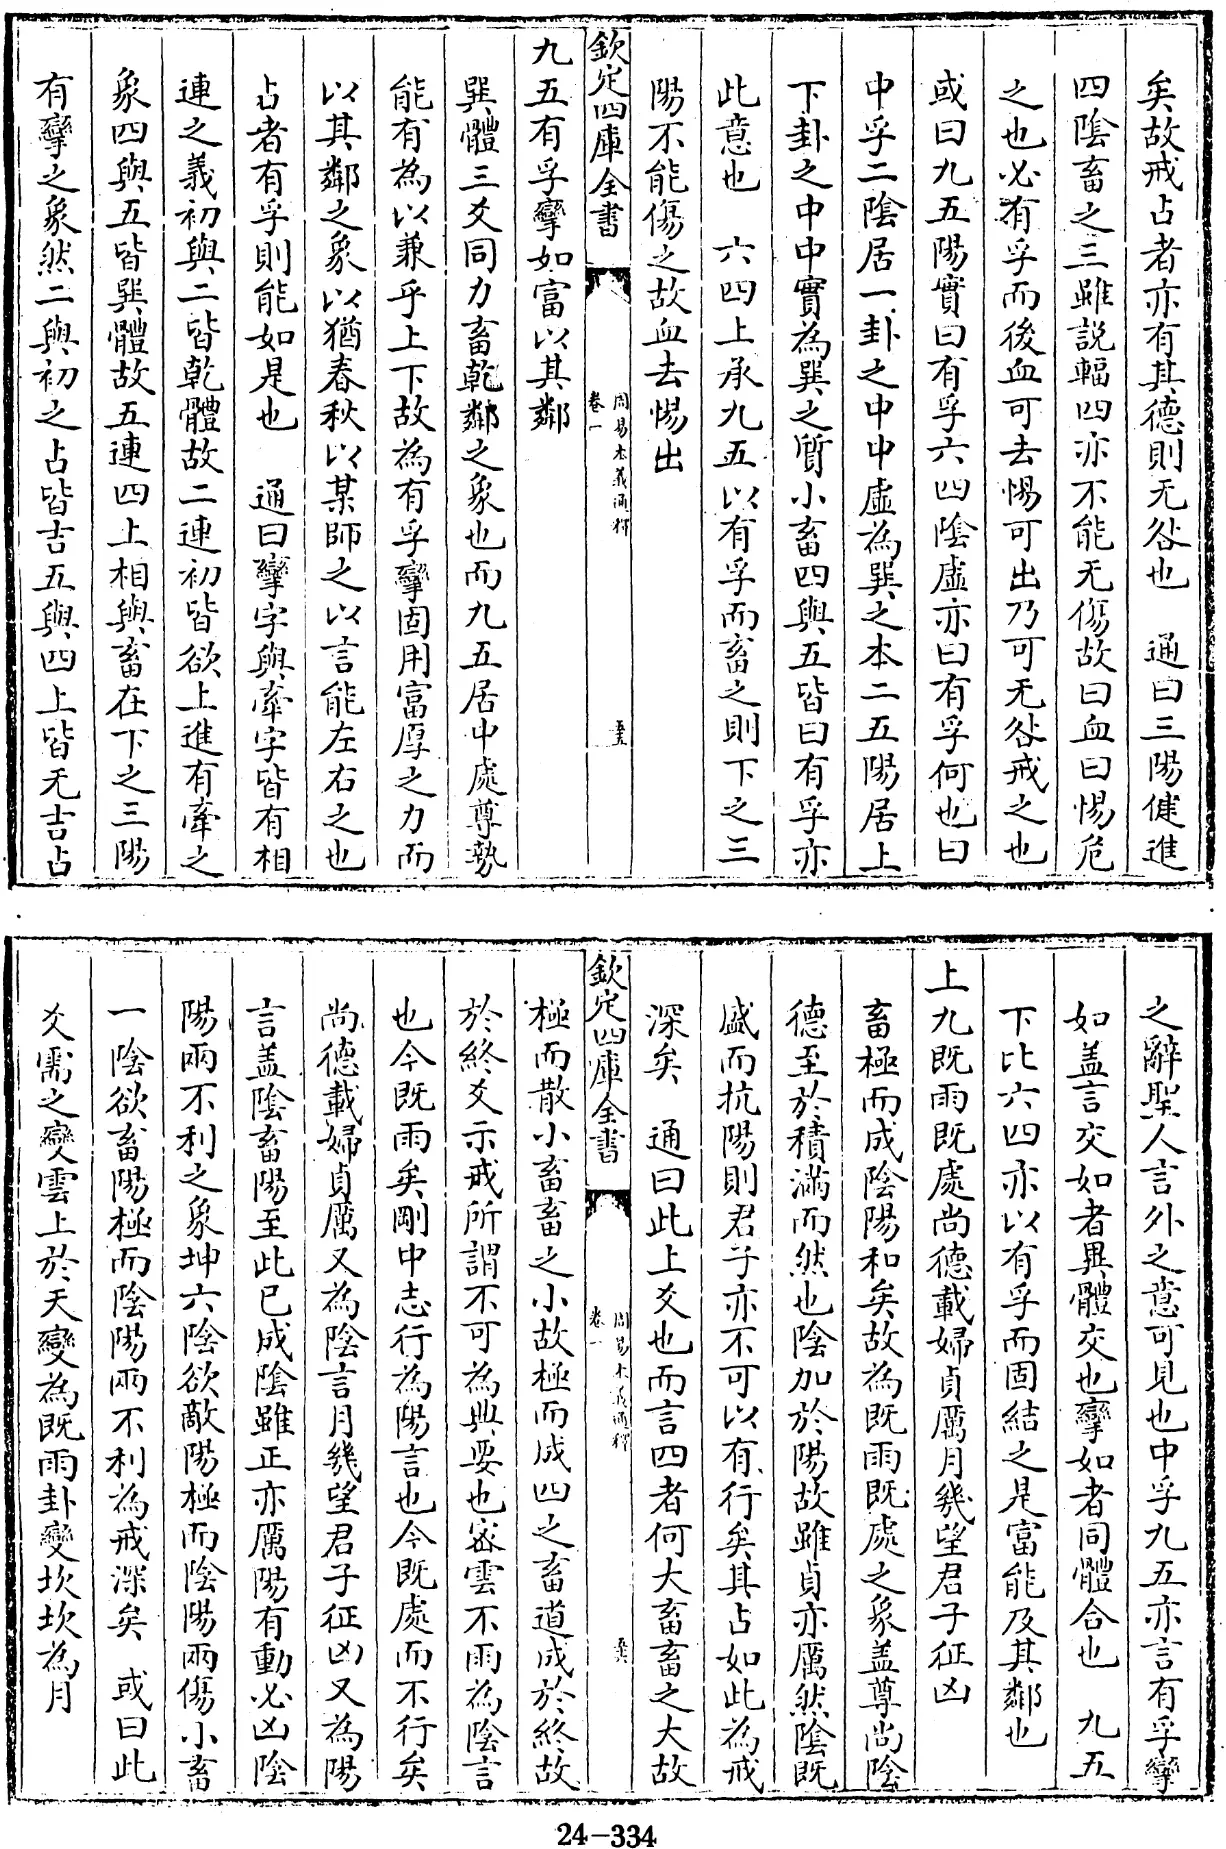 矣故戒占者亦有其德則无咎也　通曰三陽健進
四陰畜之三雖説輻四亦不能无傷故曰血曰惕危
之也必有孚而後血可去惕可出乃可无咎戒之也
或曰九五陽實曰有孚六四陰虚亦曰有孚何也曰
中孚二陰居一卦之中中虚為巽之本二五陽居上
下卦之中中實為巽之質小畜四與五皆曰有孚亦
此意也　六四上承九五以有孚而畜之則下之三
陽不能傷之故血去惕出
欽定四庫全書
周易本義通釋
卷一
九五有孚攣如富以其鄰
巽體三爻同力畜乾鄰之象也而九五居中處尊勢
能有為以兼乎上下故為有孚攣固用富厚之力而
以其鄰之象以猶春秋以某師之以言能左右之也
占者有孚則能如是也　通曰攣字與牽字皆有相
連之義初與二皆乾體故二連初皆欲上進有牽之
象四與五皆巽體故五連四上相與畜在下之三陽
有攣之象然二與初之占皆吉五與四上皆无吉占
之辭聖人言外之意可見也中孚九五亦言有孚攣
如盖言交如者異體交也攣如者同體合也　九五
下比六四亦以有孚而固結之是富能及其鄰也
上九既雨既處尚德載婦貞厲月幾望君子征凶
畜極而成陰陽和矣故為既雨既處之象盖尊尚陰
德至於積滿而然也陰加於陽故雖貞亦厲然陰既
盛而抗陽則君子亦不可以有行矣其占如此為戒
深矣　通曰此上爻也而言四者何大畜畜之大故
欽定四庫全書
周易本義通釋
卷一
極而散小畜畜之小故極而成四之畜道成於終故
於終爻示戒所謂不可為典要也密雲不雨為陰言
也今既雨矣剛中志行為陽言也今既處而不行矣
尚德載婦貞厲又為陰言月幾望君子征凶又為陽
言盖陰畜陽至此已成陰雖正亦厲陽有動必凶陰
陽兩不利之象坤六陰欲敵陽極而陰陽兩傷小畜
一陰欲畜陽極而陰陽兩不利為戒深矣　或曰此
爻需之變雲上於天變為既雨卦變坎坎為月
24-334